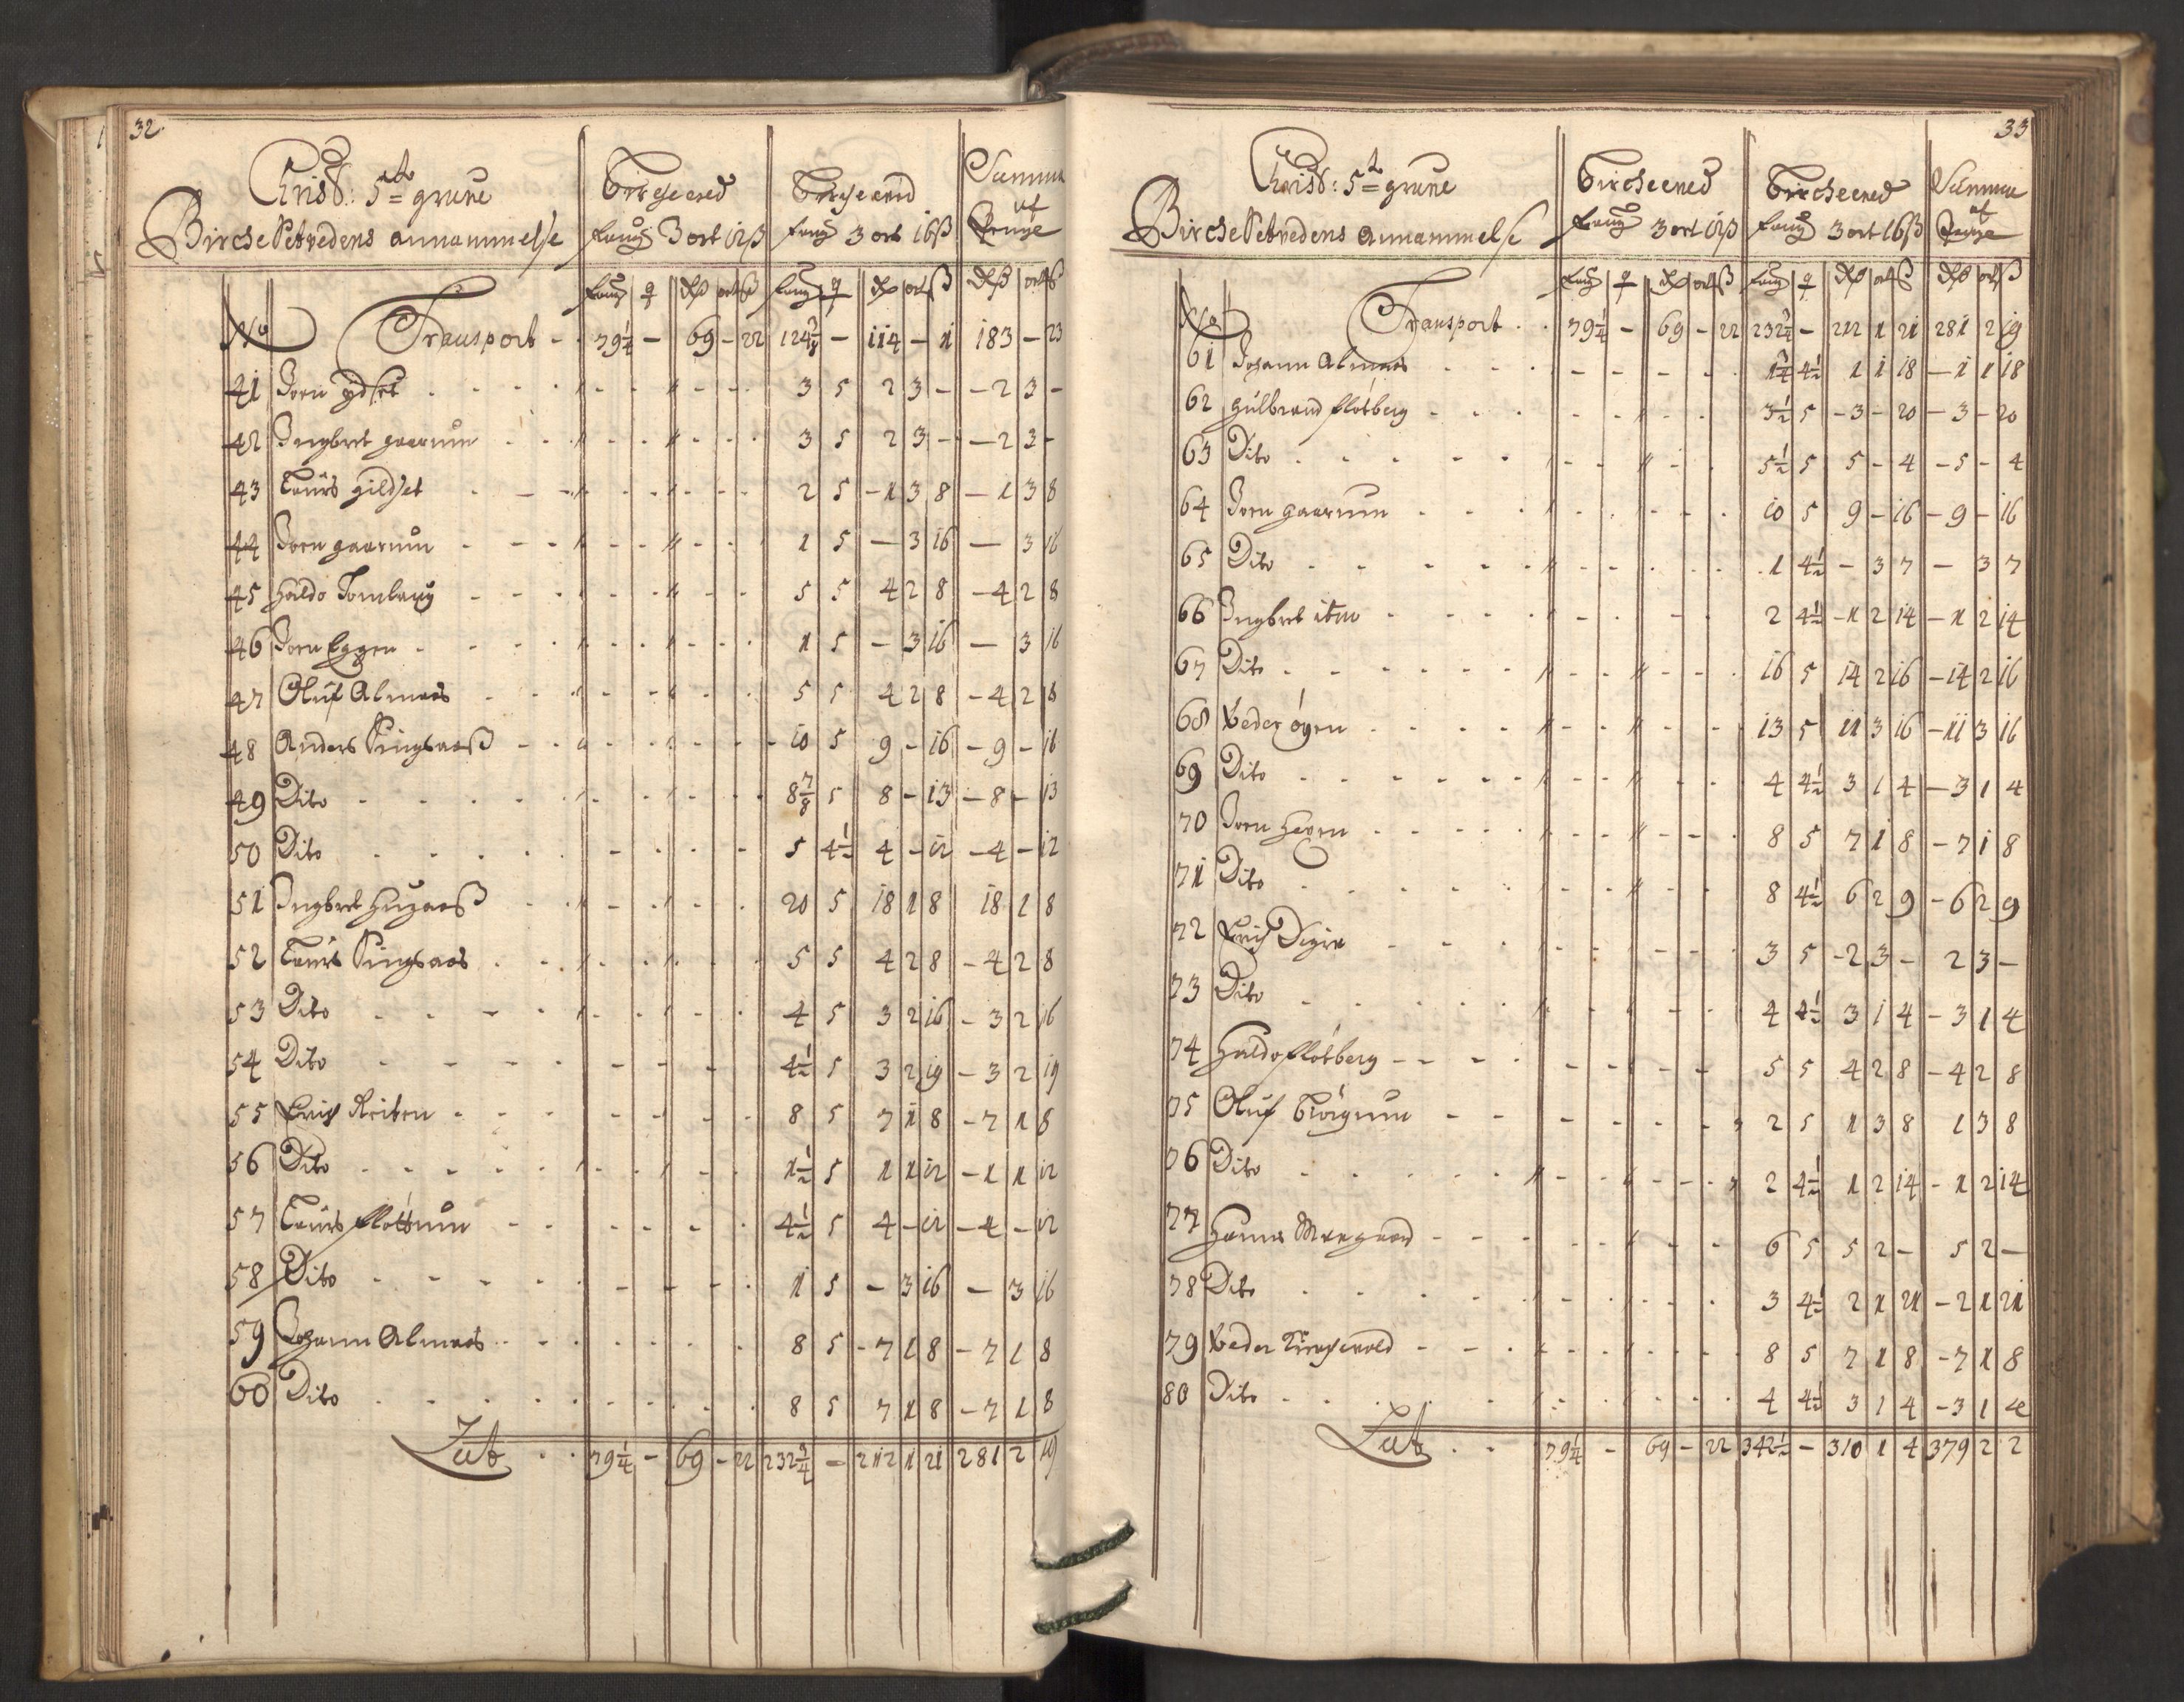 32.
Christ: 5te grune
Birche Vetvedens annammelse
Bircheved
faug 3 ort 12 ß
Bircheved
faug 3 ort 16 ß
Summa af Penge
No Transport - 79¼ - 69 - 22 124⅞ - 114 - 1 183 - 23
41 Joen 3 5 2 3 - - 2 3 -
42 Ingbret gaarum 3 5 2 3 - - 2 3 -
43 Laurs gildset 2 5 - 1 3 8 - 1 3 8
44 Joen gaarum 1 5 - 3 16 - 3 16
45 Haldo 5 5 4 2 8 - 4 2 8
46 Joen Eggen 1 5 - 3 16 - 3 16
47 Oluf Almaas 5 5 4 2 8 - 4 2 8
48 Anders Singsaaß 10 5 9 - 16 - 9 - 16
49 Dito 8⅞ 5 8 - 13 - 8 - 13
50 Dito 5 4½ 4 - 12 - 4 - 12
51 Ingbret 20 5 18 1 8 18 1 8
52 Laurs Singsaas 5 5 4 2 8 - 4 2 8
53 Dito 4 5 3 2 16 - 3 2 16
54 Dito 4½ 5 3 2 19 - 3 2 19
55 Erich Reiten 8 5 7 1 8 - 7 1 8
56 Dito 1½ 5 1 1 12 - 1 1 12
57 Laurs flottum 4½ 5 4 - 12 - 4 - 12
58 Dito 1 5 - 3 16 - 3 16
59 Johann Almaas 8 5 - 7 1 8 - 7 1 8
60 Dito 8 5 7 1 8 - 7 1 8
Lat 79¼ - 69 - 22 232¾ - 212 1 21 281 2 19
33
Christ: 5te grune
Birche Vetvedens Annammelse
Bircheved
faug 3 ort 12 ß
Bircheved
faug 3 ort 16 ß
Summa af Penge
No Transport 79¼ - 69 - 22 232¾ - 212 1 21 281 2 19
61 Johann Almaas 1¾ 4½ 1 1 18 - 1 1 18
62 gulbrand flotberg 3½ 5 - 3 - 20 - 3 - 20
63 Dito 5½ 5 5 - 4 - 5 - 4
64 Joen gaarum 10 5 9 - 16 - 9 - 16
65 Dito 1 4½ - 3 7 - 3 7
66 Ingbret itm 2 4½ - 1 2 14 - 1 2 14
67 Dito 16 5 14 2 16 - 14 2 16
68 Peder øyen 13 5 11 3 16 - 11 3 16
69 Dito 4 4½ 3 1 4 - 3 1 4
70 Joen 8 5 7 1 8 - 7 1 8
71 Dito 8 4½ 6 2 9 - 6 2 9
72 Erich 3 5 - 2 3 - 2 3 -
73 Dito 4 4½ 3 1 4 - 3 1 4
74 Haldo flotberg 5 5 4 2 8 - 4 2 8
75 Oluf 2 5 1 3 8 1 3 8
76 Dito 2 4½ 1 2 14 - 1 2 14
77 Hanns 6 5 5 2 - 5 2 -
78 Dito 3 4½ 2 1 21 - 2 1 21
79 Peder 8 5 7 1 8 - 7 1 8
80 Dito 4 4½ 3 1 4 - 3 1 4
Lat 79¼ - 69 - 22 342½ - 310 1 4 379 2 2